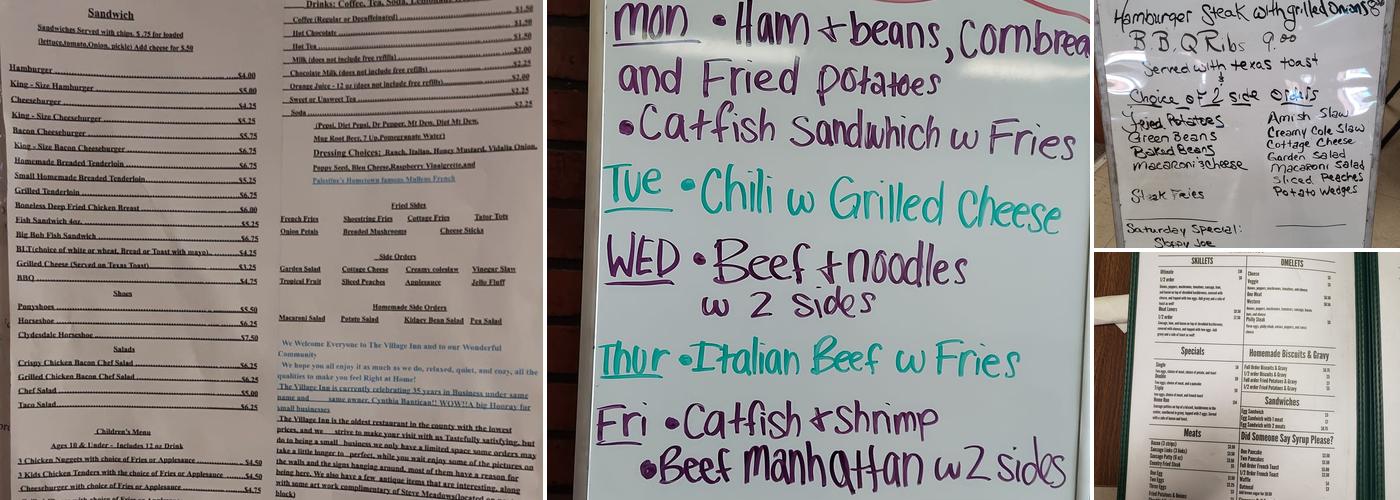 Sandwich
Sandwiches Served with chips, $ .75 for loaded
(lettuce,tomato,Onion, pickle) Add cheese for $.50
Hamburger $4.00
King - Size Hamburger $5.00
Cheeseburger $4.25
King - Size Cheeseburger $5.25
Bacon Cheeseburger $5.75
King - Size Bacon Cheeseburger $6.75
Homemade Breaded Tenderloin $6.75
Small Homemade Breaded Tenderloin $5.25
Grilled Tenderloin $6.75
Boneless Deep Fried Chicken Breast $6.00
Fish Sandwich 4oz. $5.25
Big Bob Fish Sandwich $6.75
BLT(choice of white or wheat, Bread or Toast with mayo) $4.25
Grilled Cheese (Served on Texas Toast) $3.25
BBQ $4.75
Shoes
Ponyshoes $5.50
Horseshoe $6.25
Clydesdale Horseshoe $7.50
Salads
Crispy Chicken Bacon Chef Salad $6.25
Grilled Chicken Bacon Chef Salad $6.25
Chef Salad $5.00
Taco Salad $6.25
Children's Menu
Ages 10 & Under - Includes 12 oz Drink
3 Chicken Nuggets with choice of Fries or Applesauce $4.50
3 Kids Chicken Tenders with the choice of Fries or Applesauce $4.75
Cheeseburger with choice of Fries or Applesauce
Drinks: Coffee, Tea, Soda, Lemonade
Coffee (Regular or Decaffeinated) $1.50
Hot Chocolate $1.50
Hot Tea $1.50
Milk (does not include free refills) $2.00
Chocolate Milk (does not include free refills) $2.25
Orange Juice - 12 oz (does not include free refills) $2.00
Sweet or Unsweet Tea $2.25
Soda $2.25
(Pepsi, Diet Pepsi, Dr Pepper, Mt Dew, Diet Mt Dew,
Mug Root Beer, 7 Up,Pomegranate Water)
Dressing Choices: Ranch, Italian, Honey Mustard, Vidalia Onion,
Poppy Seed, Bleu Cheese,Raspberry Vinaigrette,and
Palestine's Hometown famous Mullens French
Fried Sides
French Fries Shoestring Fries Cottage Fries Tator Tots
Onion Petals Breaded Mushrooms Cheese Sticks
Side Orders
Garden Salad Cottage Cheese Creamy coleslaw Vinegar Slaw
Tropical Fruit Sliced Peaches Applesauce Jello Fluff
Homemade Side Orders
Macaroni Salad Potato Salad Kidney Bean Salad Pea Salad
We Welcome Everyone to The Village Inn and to our Wonderful
Community
We hope you all enjoy it as much as we do, relaxed, quiet, and cozy, all the
qualities to make you feel Right at Home!
The Village Inn is currently celebrating 35 years in Business under same
name and same owner, Cynthia Bantican!! WOW!!A big Hooray for
small businesses
The Village Inn is the oldest restaurant in the county with the lowest
prices, and we strive to make your visit with us Tastefully satisfying, but
do to being a small business we only have a limited space some orders may
take a little longer to perfect, while you wait enjoy some of the pictures on
the walls and the signs hanging around, most of them have a reason for
being here. We also have a few antique items that are interesting, along
with some art work complimentary of Steve Meadows(located on
block)
Mon • Ham + beans, Cornbrea
and Fried potatoes
• Catfish Sandwhich w Fries
Tue • Chili w Grilled Cheese
WED • Beef + noodles
w 2 sides
Thur • Italian Beef w Fries
Fri • Catfish + Shrimp
• Beef Manhattan w 2 sides
Hamburger Steak with grilled onions
B.B.Q Ribs 9.00
Served with texas toast
&
Choice of 2 side orders
Fried Potatoes
Green Beans
Baked Beans
macaroni & cheese
Steak Fries
Amish Slaw
Creamy Cole Slaw
Cottage Cheese
Garden Salad
Macaroni Salad
Sliced Peaches
Potato Wedges
Saturday Special:
Sloppy Joe
SKILLETS
Ultimate
1/2 order
Meat Lovers
1/2 order
Specials
Single
Double
Triple
Home Run
Meats
Bacon (3 strips)
Sausage Links (3 links)
Sausage Patty (6 oz)
Country Fried Steak
One Egg
Two Eggs
Three Eggs
OMELETS
Cheese
Veggie
One Meat
Western
Philly Steak
Homemade Biscuits & Gravy
Full Order Biscuits & Gravy
1/2 Order Biscuits & Gravy
Full order Fried Potatoes & Gravy
1/2 order Fried Potatoes & Gravy
Sandwiches
Egg Sandwich
Egg Sandwich with 1 meat
Egg Sandwich with 2 meats
Did Someone Say Syrup Please?
One Pancake
Two Pancakes
Full Order French Toast
1/2 Order French Toast
Waffle
Oatmeal